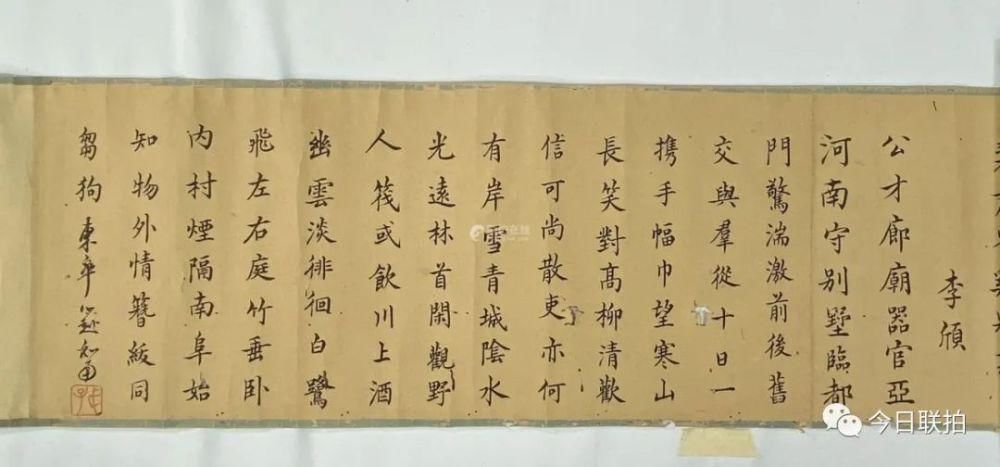 李頎
公才廊廟器官亞
河南守别墅臨都
門驚湍激前後舊
交與羣從十日一
携手幅巾望寒山
長笑對高柳清歡
信可尚散吏亦何
有岸雪青城陰水
光遠林首閑觀野
人筏或飲川上酒
幽雲淡徘徊白鷺
飛左右庭竹垂卧
内村煙隔南阜始
知物外情簪紱同
芻狗
今日联拍